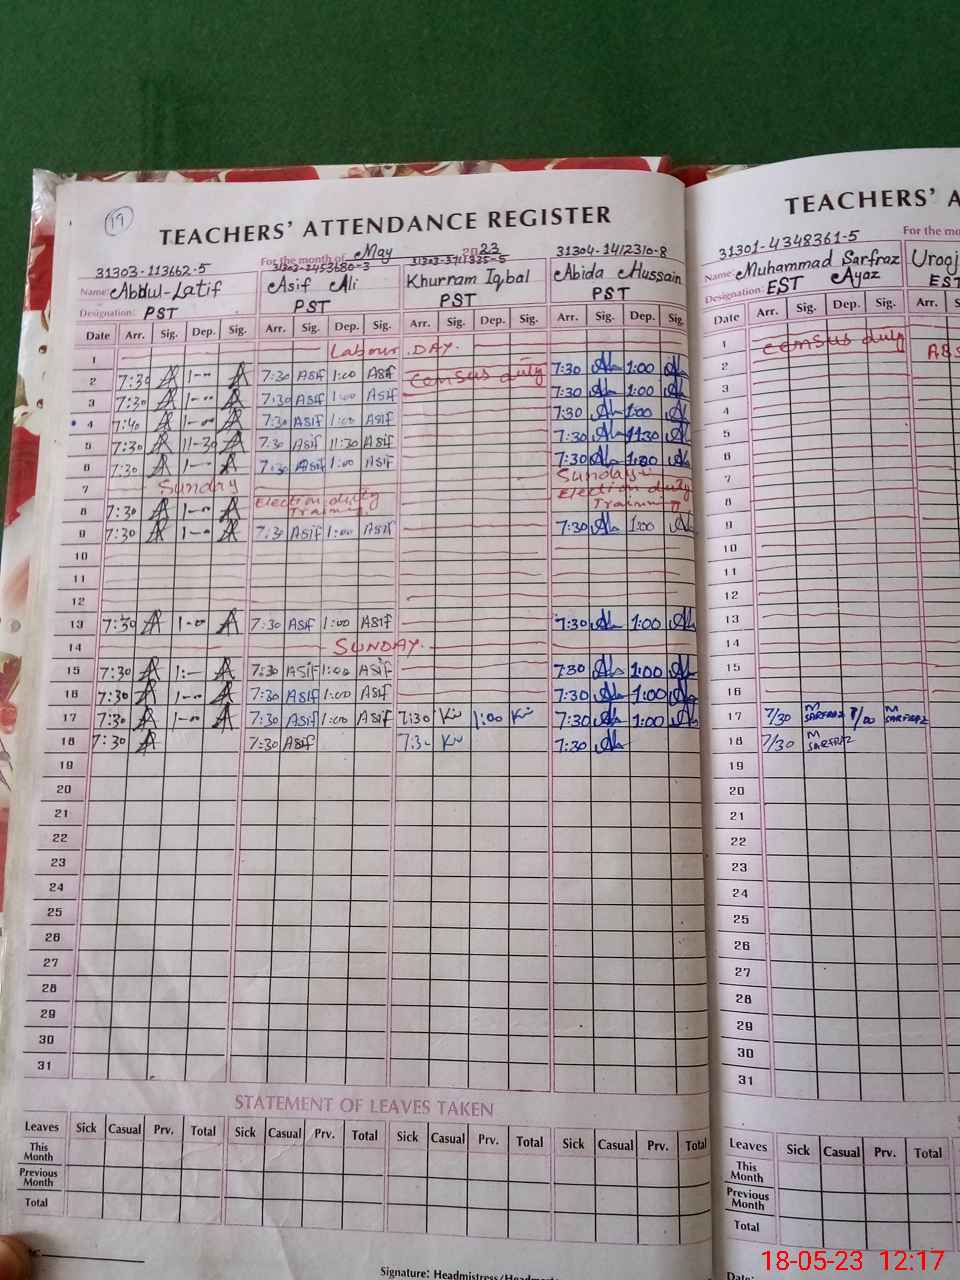 19
TEACHERS' ATTENDANCE REGISTER
For the month of May 2023
31303-113662-5 31303-2453680-3 31304-1412310-8
Name: Abdul-Latif Asif Ali Khurram Iqbal Abida Hussain
Designation: PST PST PST PST
Date Arr. Sig. Dep. Sig. Arr. Sig. Dep. Sig. Arr. Sig. Dep. Sig. Arr. Sig. Dep. Sig.
1 Labour DAY.
2 7:30 1-00 7:30 Asif 1:00 Asif Census duty 7:30 1:00
3 7:30 1-00 7:30 Asif 1:00 Asif 7:30 1:00
4 7:40 1-00 7:30 Asif 1:00 Asif 7:30 1:00
5 7:30 11-30 7:30 Asif 11:30 Asif 7:30 11:30
6 7:30 1-00 7:30 Asif 1:00 Asif 7:30 1:00
7 Sunday Sunday
8 7:30 1-00 Election duty Training Election duty Training
9 7:30 1-00 7:30 Asif 1:00 Asif 7:30 1:00
10
11
12
13 7:30 1-00 7:30 Asif 1:00 Asif 7:30 1:00
14 SUNDAY.
15 7:30 1:- 7:30 ASif 1:00 ASif 7:30 1:00
16 7:30 1-00 7:30 ASif 1:00 Asif 7:30 1:00
17 7:30 1-00 7:30 Asif 1:00 Asif 7:30 1:00 7:30 1:00
18 7:30 7:30 Asif 7:30 7:30
19
20
21
22
23
24
25
26
27
28
29
30
31
STATEMENT OF LEAVES TAKEN
Leaves Sick Casual Prv. Total Sick Casual Prv. Total Sick Casual Prv. Total Sick Casual Prv. Total
This Month
Previous Month
Total
Signature: Headmistress/
TEACHERS' A
For the mo
31301-4348361-5
Name: Muhammad Sarfraz Ayaz
Designation: EST EST
Date Arr. Sig. Dep. Sig. Arr.
1 Census duty
2
3
4
5
6
7
8
9
10
11
12
13
14
15
16
17 7/30 M SARFRAZ 1/00 M SARFRAZ
18 7/30 M SARFRAZ
19
20
21
22
23
24
25
26
27
28
29
30
31
Leaves Sick Casual Prv. Total
This Month
Previous Month
Total
Date:
18-05-23 12:17